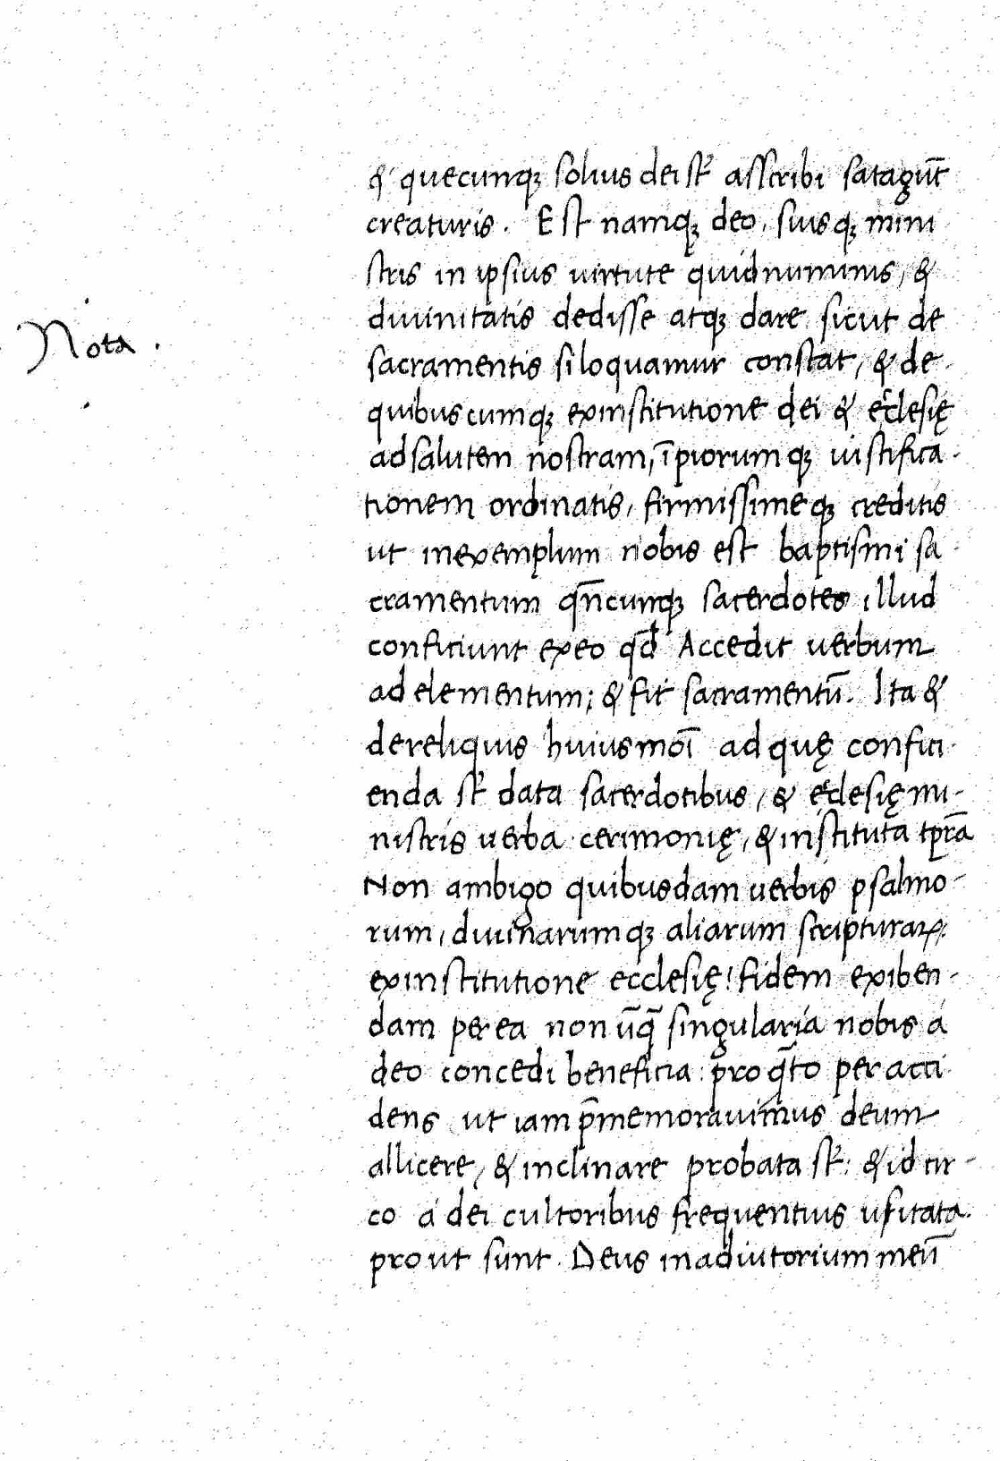 & quecunqꝫ solius dei sͭ asscribi satagūt
creaturis. Est namqꝫ deo, suisqꝫ mini
stris in ipsius uirtute quid numinis, &
diuinitatis dedisse atqꝫ dare sicut de
Nota.
sacramentis si loquamur constat, & de
quibuscumqꝫ ex institutione dei & ecclesię
ad salutem nostram, īpiorumqꝫ iustifica-
tionem ordinatis, firmissimeqꝫ creditis
ut in exemplum nobis est baptismi sa-
cramentum qn̄cunqꝫ sacerdotes illud
conficiunt ex eo qd̄ Accedit uerbum
ad elementum; & fit sacramentū. Ita &
de reliquis huiusmōi ad quę confici-
enda sͭ data sacerdotibus, & ecclesię mi-
nistris uerba cerimonię, & instituta tp̄rā
Non ambigo quibusdam uerbis psalmo-
rum, diuinarumqꝫ aliarum scripturaꝝ:
ex institutione ecclesię! fidem exiben-
dam per ea non ūq̄ singularia nobis á
deo concedi beneficia: pro q̄to per acci-
dens ut iam p̄memorauimus deum
allicere, & inclinare probata sͭ: & idcir-
co á dei cultoribus frequentius usitata.
prout sunt. Deus in adiutorium meū